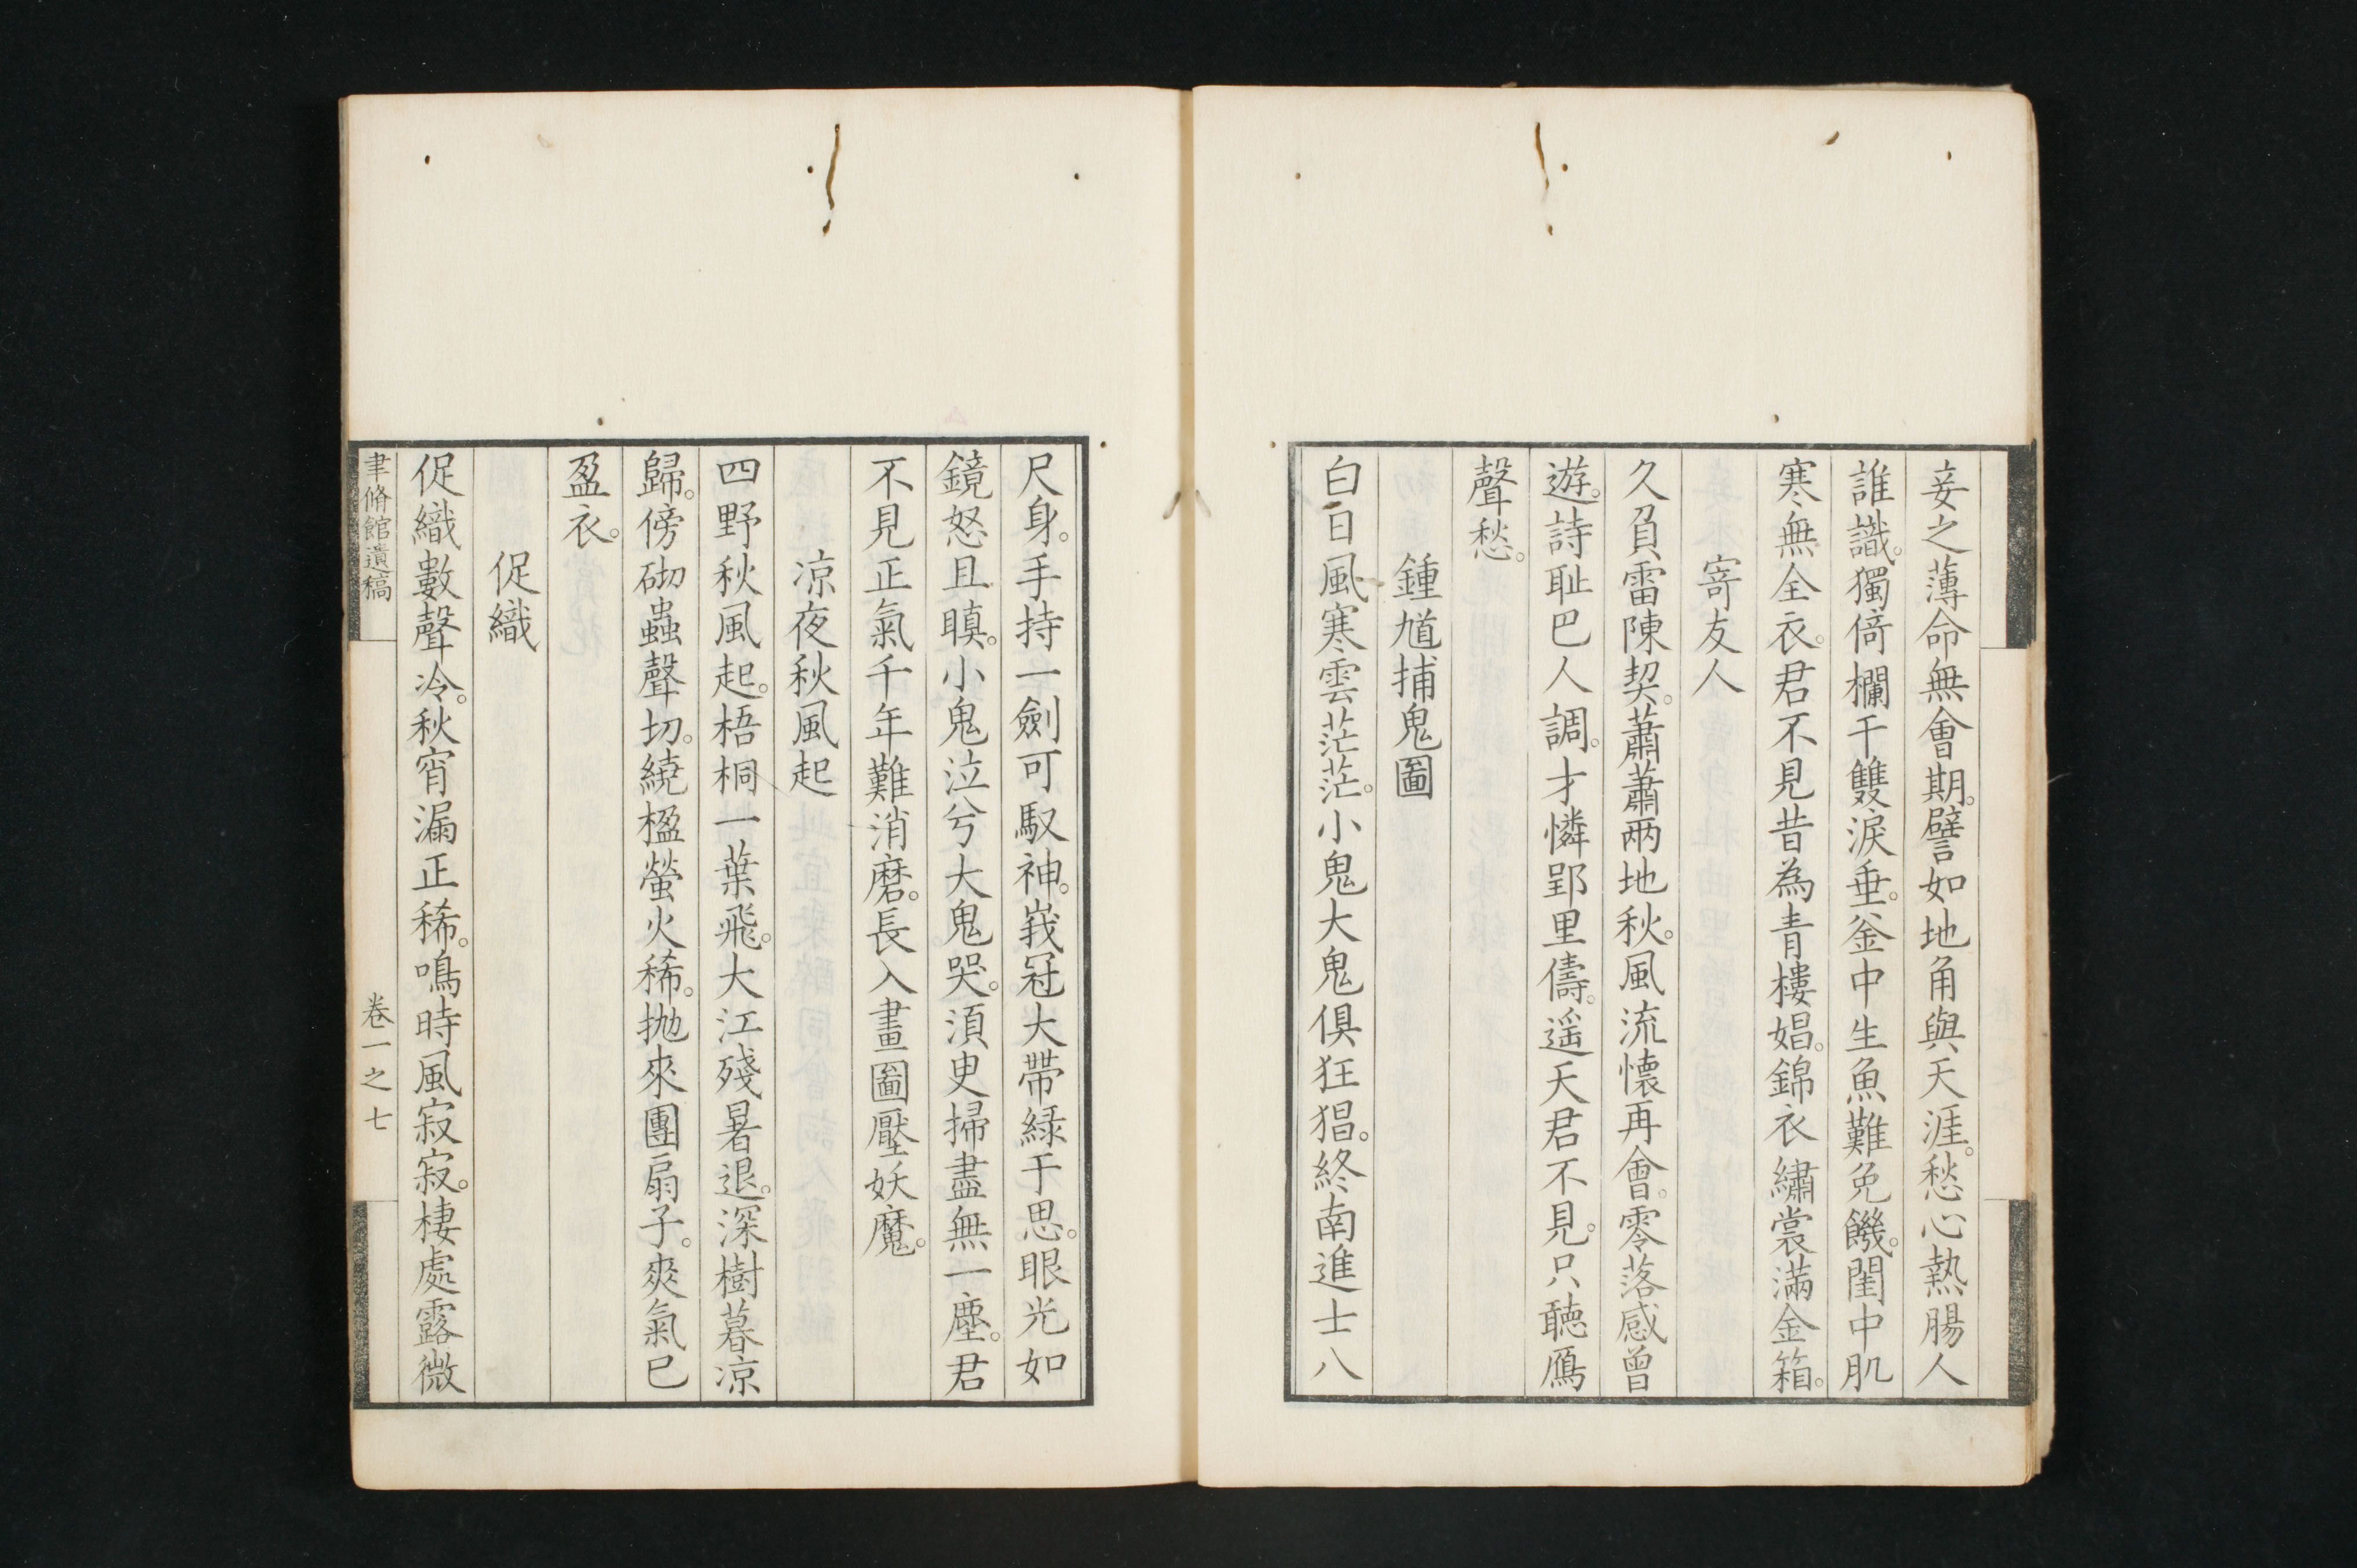 妾之薄命無會期。譬如地角與天涯。愁心熱腸人
誰識。獨倚欄干雙淚垂。釜中生魚難免饑。閨中肌
寒無全衣。君不見昔為青樓娼。錦衣繡裳滿金箱。
寄友人
久負雷陳契。蕭蕭兩地秋。風流懷再會。零落感曾
遊。詩耻巴人調。才憐郢里儔。遥天君不見。只聽鴈
聲愁。
鍾馗捕鬼圖
白日風寒雲茫茫。小鬼大鬼俱狂猖。終南進士八
尺身。手持一劍可馭神。峩冠大帶綠于思。眼光如
鏡怒且瞋。小鬼泣兮大鬼哭。須臾掃盡無一塵。君
不見正氣千年難消磨。長入畫圖壓妖魔。
凉夜秋風起
四野秋風起。梧桐一葉飛。大江殘暑退。深樹暮凉
歸。傍砌蟲聲切。繞楹螢火稀。拋來團扇子。爽氣已
盈衣。
促織
促織數聲冷。秋宵漏正稀。鳴時風寂寂。棲處露微
聿脩館遺稿 卷一之七